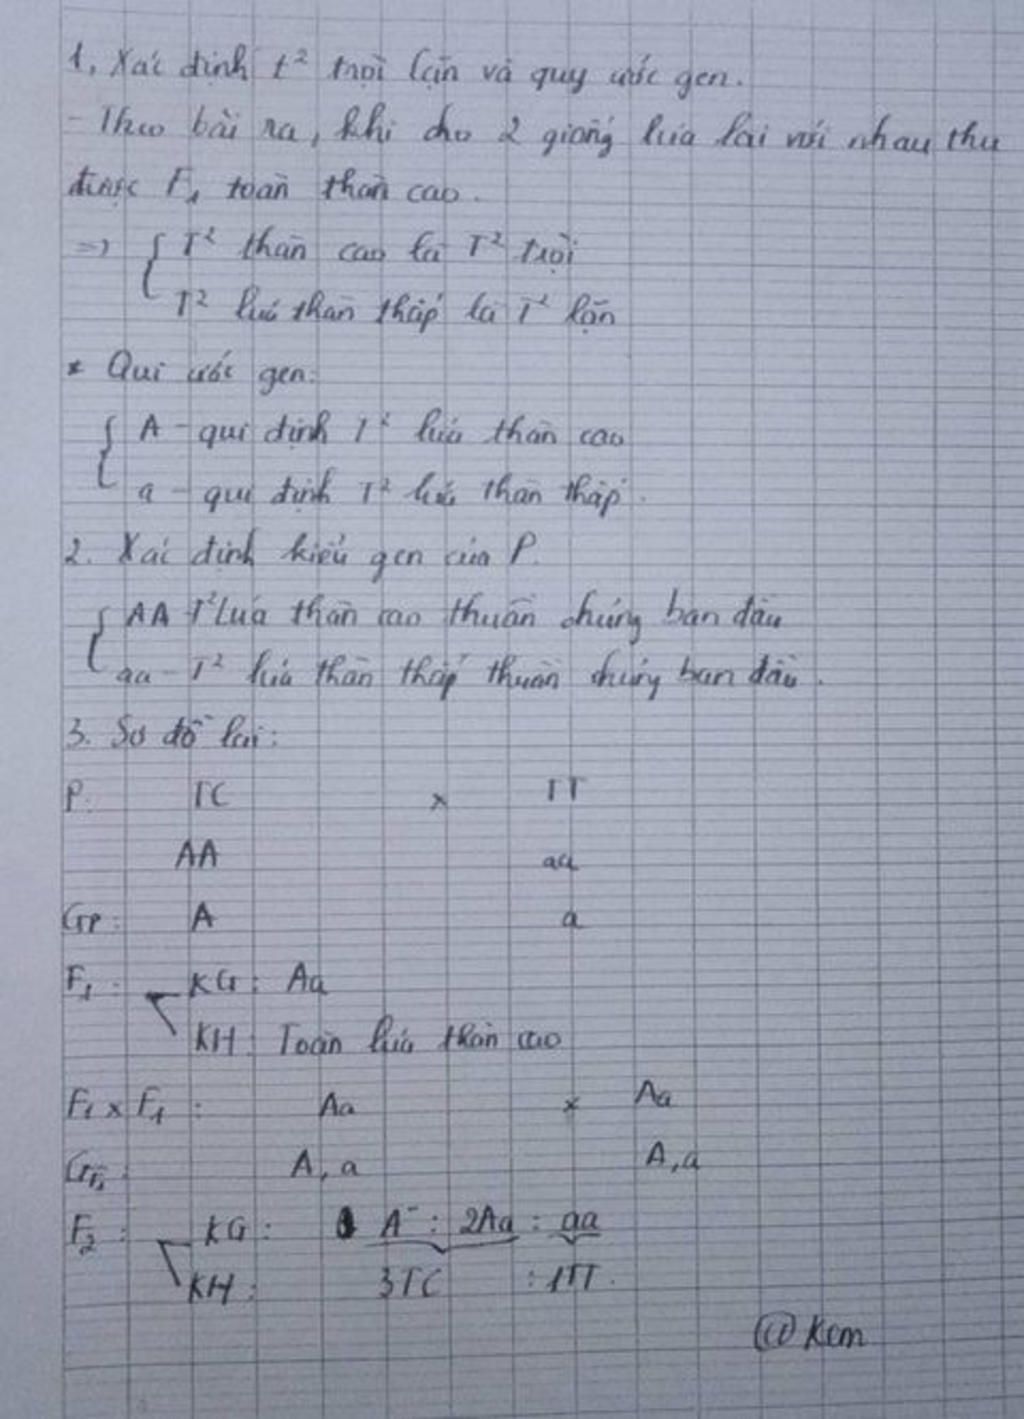 1, Xác định t² trội lặn và quy ước gen.
- Theo bài ra, khi cho 2 giống lúa lai với nhau thu
được F₁ toàn thân cao.
=> { T² thân cao là T² trội
T² lúa thân thấp là T² lặn
* Qui ước gen:
{ A - qui định T² lúa thân cao
a - qui định T² lúa thân thấp.
2. Xác định kiểu gen của P.
{ AA T² Lúa thân cao thuần chủng ban đầu
aa - T² lúa thân thấp thuần chủng ban đầu.
3. Sơ đồ lai:
P: TC x TT
AA aa
GP: A a
F₁: KG: Aa
KH: Toàn lúa thân cao
F₁ x F₁ : Aa x Aa
GF₁: A, a A, a
F₂ : KG: A⁻ : 2Aa : aa
KH: 3TC : 1TT.
@Kem